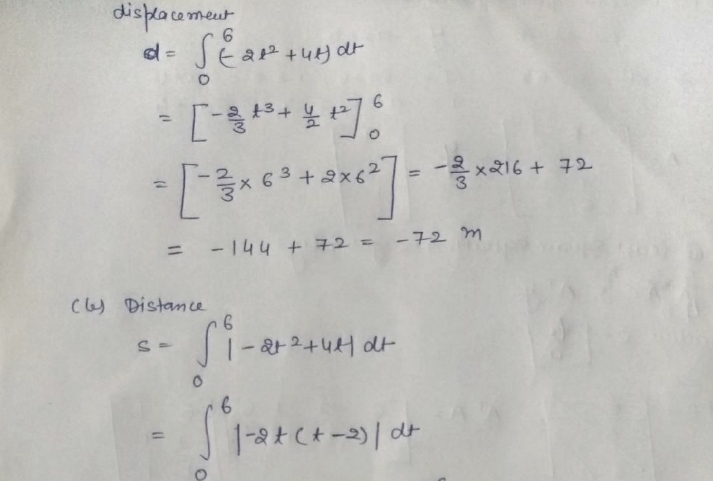 displacement
d = ∫₀⁶ (-2t² + 4t) dt
= [-2/3 t³ + 4/2 t²]₀⁶
= [-2/3 × 6³ + 2×6²] = -2/3 × 216 + 72
= -144 + 72 = -72 m
(b) Distance
s = ∫₀⁶ |-2t² + 4t| dt
= ∫₀⁶ |-2t (t-2)| dt